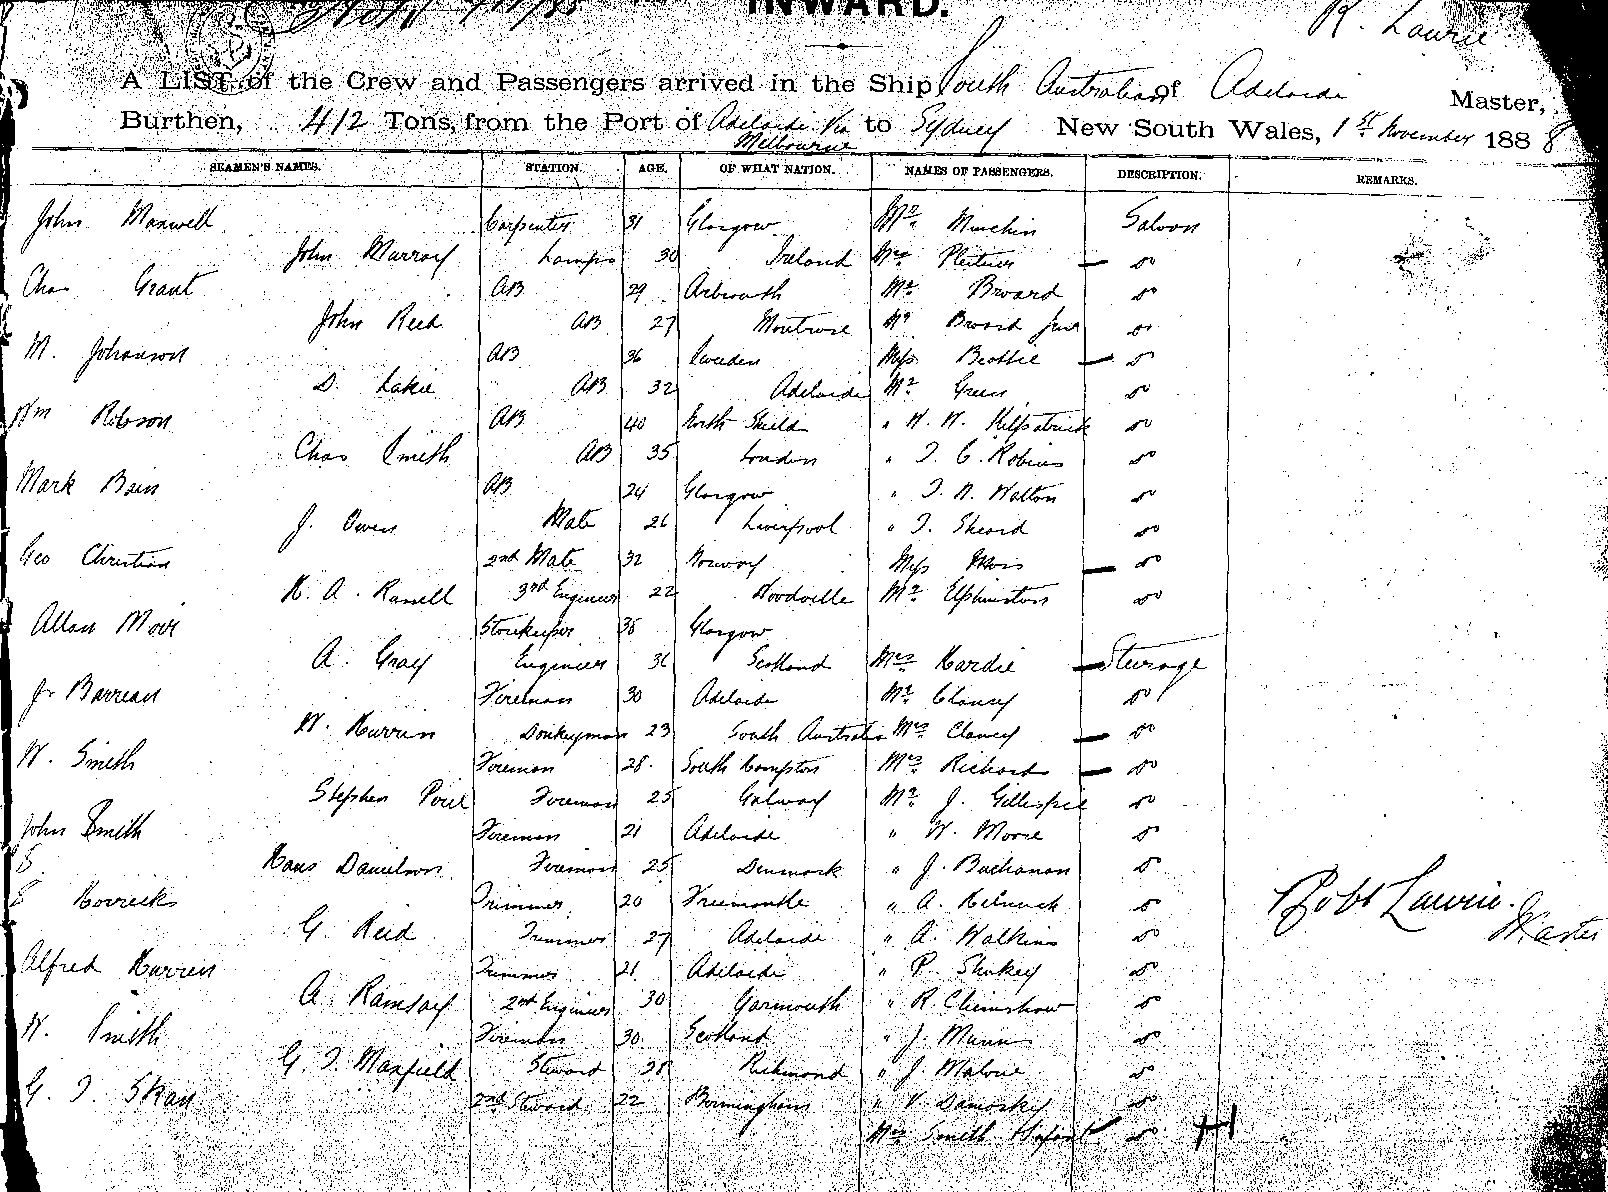 INWARD.
R. Laurie
A LIST of the Crew and Passengers arrived in the Ship South Australian of Adelaide Master,
Burthen, 412 Tons, from the Port of Adelaide Via Melbourne to Sydney New South Wales, 1st November 1888
SEAMEN'S NAMES. STATION. AGE. OF WHAT NATION. NAMES OF PASSENGERS. DESCRIPTION. REMARKS.
John Maxwell Carpenter 31 Glasgow Mr Minchin Saloon
John Murray Lamps 30 Ireland Mrs do
Chas Grant AB 29 Arbroath Mr Broard do
John Reid AB 27 Montrose Mr Broard Junr do
M. Johanson AB 36 Sweden Miss Beattie do
D. Lakie AB 32 Adelaide Mr Green do
Wm Robson AB 40 North Shields " W. W. Kilpatrick do
Chas Smith AB 35 London " T. C. Robins do
Mark Bain AB 24 Glasgow " T. W. Walton do
J. Owen Mate 26 Liverpool " T. Sheard do
Geo Christian 2nd Mate 32 Norway Miss do
H. A. Ransell 3rd Engineer 22 Woodville Mr Elphinston do
Allan Moir Storekeeper 38 Glasgow
A. Gray Engineer 36 Scotland Mrs Hardie Steerage
Fireman 30 Adelaide Mr Clancy do
W. Hurren Donkeyman 23 South Australia Mrs Clancy do
W. Smith Fireman 28 South Hampton Mrs Richard do
Stephen Foreman 25 Galway Mr J. Gillespie do
John Smith Fireman 21 Adelaide " W. Moore do
Hans Danielson Fireman 25 Denmark " J. Buchanan do
Trimmer 20 Freemantle " A. do
Robt Laurie.
Master
G. Reid Trimmer 27 Adelaide " A. Watkins do
Alfred Hurren Trimmer 21 Adelaide " P. do
A. Ramsay 2nd Engineer 30 Yarmouth " R. do
W. Smith Fireman 30 Scotland " J. Munn do
G. T. Maxfield Steward 38 Richmond " J. Malone do
G. T. 2nd Steward 22 Birmingham " V. do
Mrs Smith Infant do